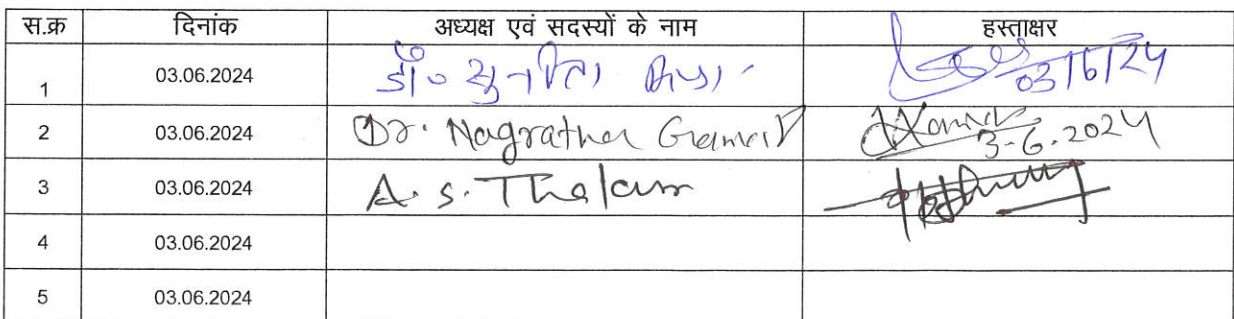 स.क्र दिनांक अध्यक्ष एवं सदस्यों के नाम हस्ताक्षर
1 03.06.2024 डॉ० सुनीता मिश्रा 03/6/24
2 03.06.2024 Dr. Nagratna Ganvir 3-6.2024
3 03.06.2024 A. S. Thakur
4 03.06.2024
5 03.06.2024